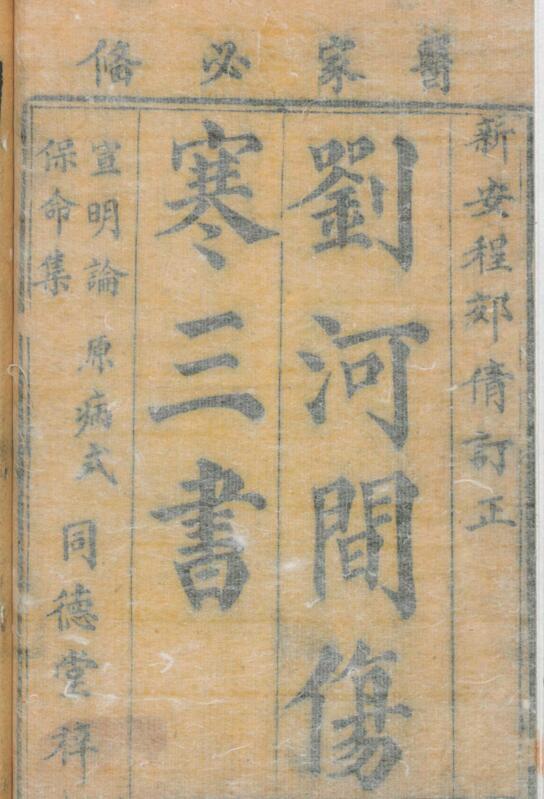 醫家必備
新安程郊倩訂正
劉河間傷
寒三書
宣明論
保命集
原病式
同德堂梓